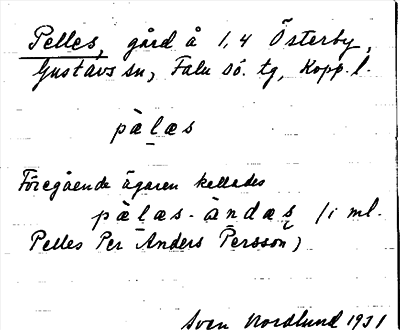 Pelles, gård å 1,4 Österby,
Gustavs sn, Falu sö. tg, Kopp. l.
pæ̀læs
Föregående ägaren kallades
pæ̀læs-àndæs (i ml.
Pelles Per Anders Persson)
Sven Nordlund 1931